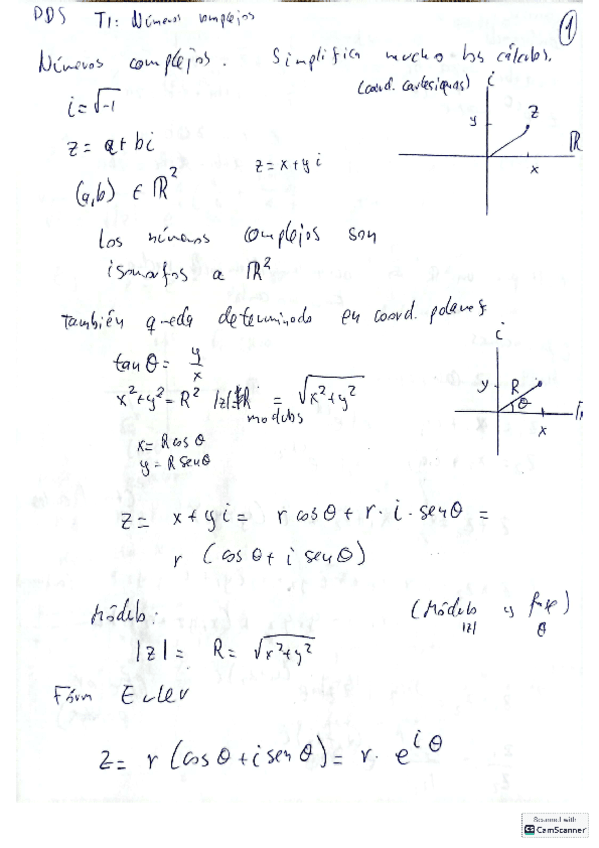 PDS T1: Números complejos
1
Números complejos. Simplifica mucho los cálculos.
i = √-1
(coord. cartesianas) i
y
z
ℝ
x
z = a + bi
z = x + y i
(a,b) ∈ ℝ²
Los números complejos son
isomorfos a ℝ²
También queda determinado en coord. polares
i
tan θ = y/x
x² + y² = R² |z| = R = √x²+y²
modulos
y
R
θ
x
x = R cos θ
y = R sen θ
z = x + y i = r cos θ + r · i · sen θ =
r (cos θ + i sen θ)
Módulo: (Módulo y fase)
|z| θ
|z| = R = √x²+y²
Fórm Euler
z = r (cos θ + i sen θ) = r · e^iθ
Scanned with
CS CamScanner